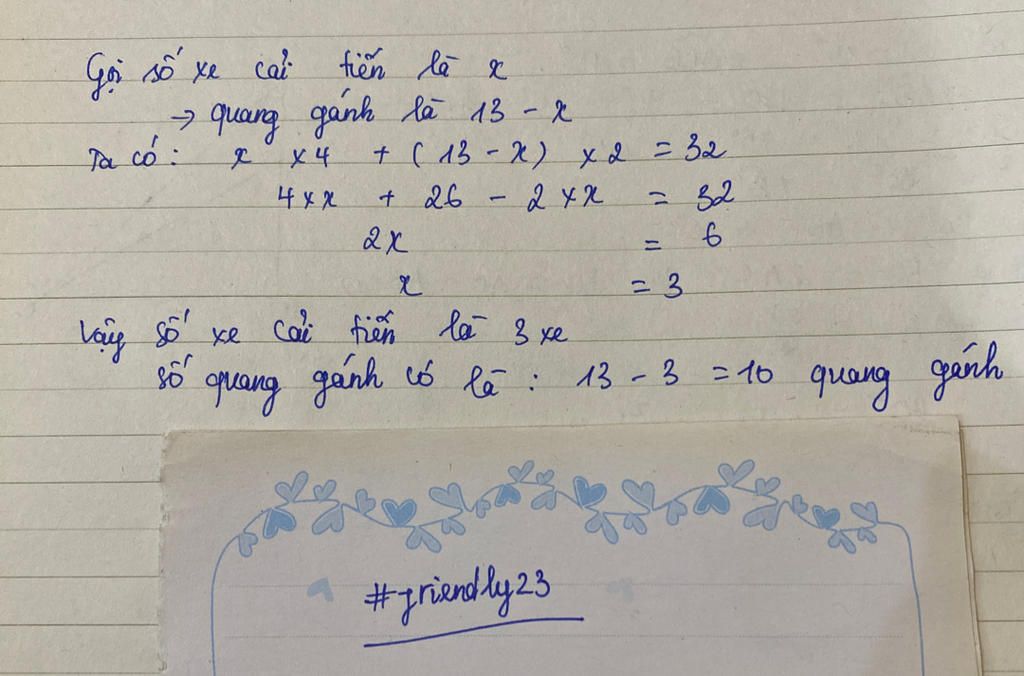 Gọi số xe cải tiến là x
→ quang gánh là 13 - x
Ta có: x x4 + (13 - x) x2 = 32
4 x x + 26 - 2 x x = 32
2x = 6
x = 3
Vậy số xe cải tiến là 3 xe
số quang gánh có là : 13 - 3 = 10 quang gánh
#friendly23